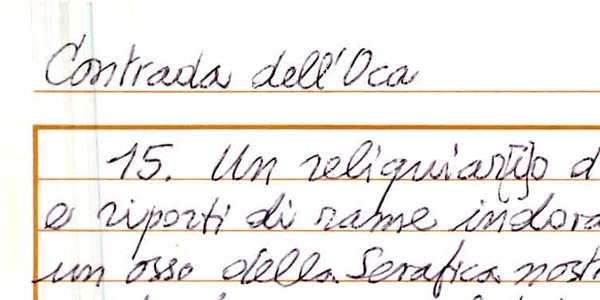 Contrada dell'Oca
15. Un reliquiar[i]o d
e riporti di rame indora
un osso della Serafica nost